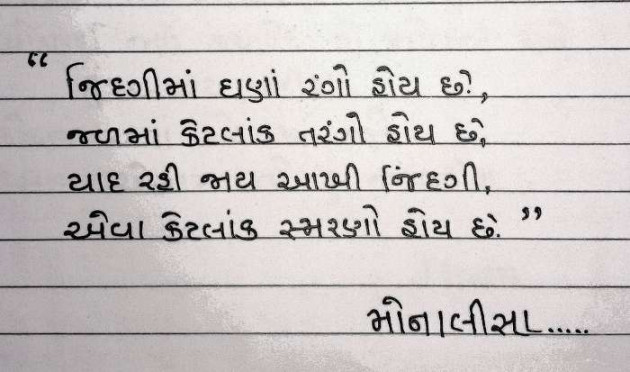 “ જિંદગીમાં ઘણાં રંગો હોય છે,
જળમાં કેટલાંક તરંગો હોય છે,
યાદ રહી જાય આખી જિંદગી,
એવા કેટલાંક સ્મરણો હોય છે. ”
મોનાલીસા.....